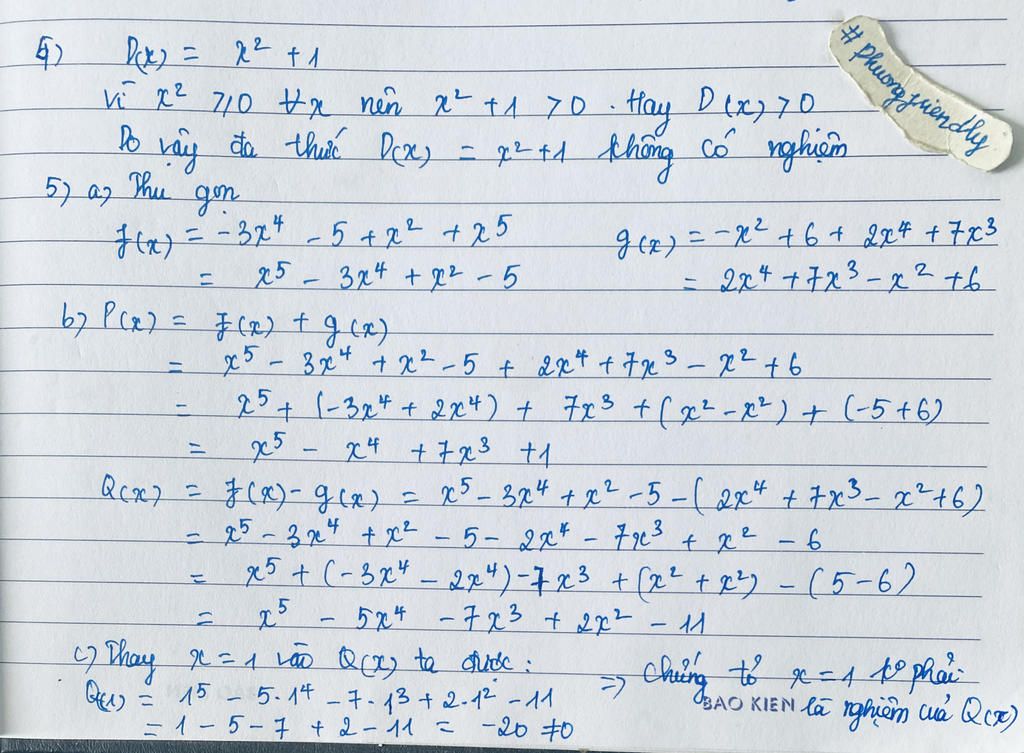 4) D(x) = x² + 1
Vì x² ≥ 0 ∀x nên x² + 1 > 0. Hay D(x) > 0
Do vậy đa thức D(x) = x² + 1 không có nghiệm
#phuongfriendly
5) a) Thu gọn
f(x) = -3x⁴ - 5 + x² + x⁵
= x⁵ - 3x⁴ + x² - 5
g(x) = -x² + 6 + 2x⁴ + 7x³
= 2x⁴ + 7x³ - x² + 6
b) P(x) = f(x) + g(x)
= x⁵ - 3x⁴ + x² - 5 + 2x⁴ + 7x³ - x² + 6
= x⁵ + (-3x⁴ + 2x⁴) + 7x³ + (x² - x²) + (-5 + 6)
= x⁵ - x⁴ + 7x³ + 1
Q(x) = f(x) - g(x) = x⁵ - 3x⁴ + x² - 5 - (2x⁴ + 7x³ - x² + 6)
= x⁵ - 3x⁴ + x² - 5 - 2x⁴ - 7x³ + x² - 6
= x⁵ + (-3x⁴ - 2x⁴) - 7x³ + (x² + x²) - (5 - 6)
= x⁵ - 5x⁴ - 7x³ + 2x² - 11
c) Thay x = 1 vào Q(x) ta được:
Q(1) = 1⁵ - 5.1⁴ - 7.1³ + 2.1² - 11
= 1 - 5 - 7 + 2 - 11 = -20 ≠ 0
=> chứng tỏ x = 1 k° phải
là nghiệm của Q(x)
BAO KIEN